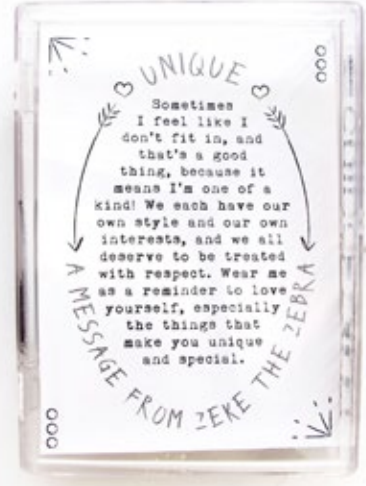 UNIQUE
Sometimes
I feel like I
don't fit in, and
that's a good
thing, because it
means I'm one of a
kind! We each have our
own style and our own
interests, and we all
deserve to be treated
with respect. Wear me
as a reminder to love
yourself, especially
the things that
make you unique
and special.
A MESSAGE FROM ZEKE THE ZEBRA